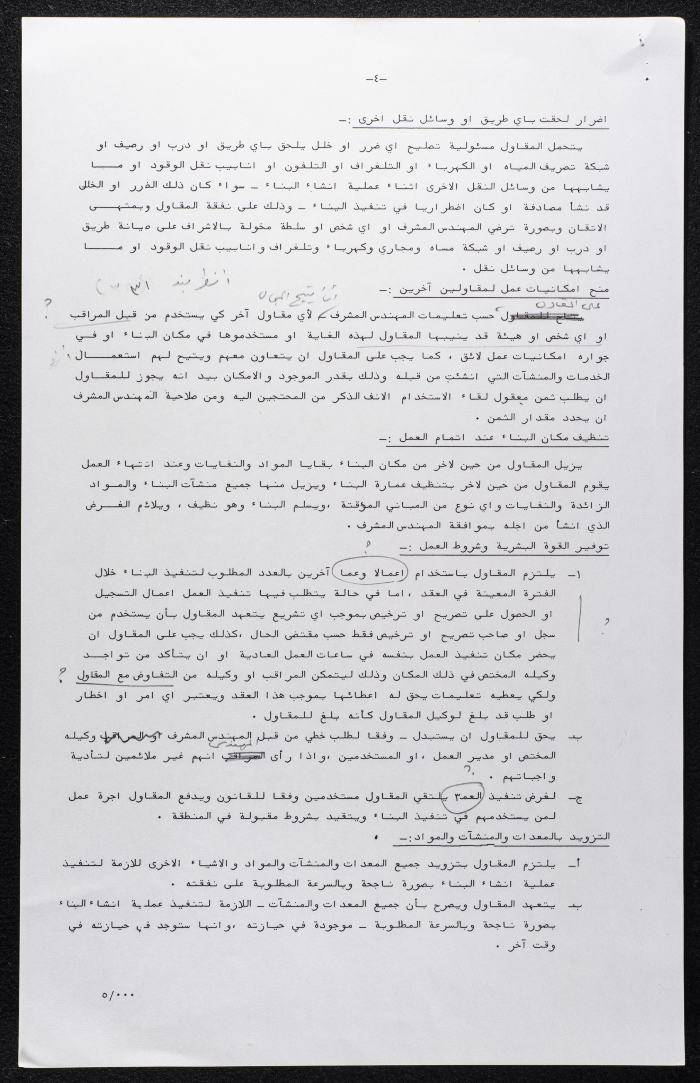 -٤-
اضرار لحقت باي طريق او وسائل نقل اخرى :-
يتحمل المقاول مسئولية تصليح اي ضرر او خلل يلحق باي طريق او درب او رصيف او
شبكة تصريف المياه او الكهرباء او التلغراف او التلفون او انابيب نقل الوقود او مـــا
يشابهها من وسائل النقل الاخرى اثناء عملية انشاء البناء - سواء كان ذلك الضرر او الخلل
قد نشأ مصادفة او كان اضطراريا في تنفيذ البناء - وذلك على نفقة المقاول وبمنتهـــى
الاتقان وبصورة ترضي المهندس المشرف او اي شخص او سلطة مخولة بالاشراف على صيانة طريق
او درب او رصيف او شبكة مساه ومجاري وكهرباء وتلغراف وانابيب نقل الوقود او مـــا
يشابهها من وسائل نقل .
انظر بند
منح امكانيات عمل لمقاولين آخرين :-
على المقاول
؟
يتاح للمقاول حسب تعليمات المهندس المشرف لأي مقاول آخر كي يستخدم من قبل المراقب
او اي شخص او هيئة قد ينيبها المقاول لهذه الغاية او مستخدموها في مكان البناء او في
جواره امكانيات عمل لائق ، كما يجب على المقاول ان يتعاون معهم ويتيح لهم استعمـــال
الخدمات والمنشآت التي انشئت من قبله وذلك بقدر الموجود والامكان بيد انه يجوز للمقـاول
ان يطلب ثمن معقول لقاء الاستخدام الانف الذكر من المحتجين اليه ومن صلاحية المهندس المشرف
ان يحدد مقدار الثمن .
تنظيف مكان البناء عند اتمام العمل :-
يزيل المقاول من حين لاخر من مكان البناء بقايا المواد والنفايات وعند انتهاء العمل
يقوم المقاول من حين لاخر بتنظيف عمارة البناء ويزيل منها جميع منشآت البناء والمـواد
الزائدة والنفايات واي نوع من المباني المؤقتة ،ويسلم البناء وهو نظيف ، ويلائم الغـرض
الذي انشأ من اجله بموافقة المهندس المشرف .
توفير القوة البشرية وشروط العمل :-
؟
١- يلتزم المقاول باستخدام اعمالا وعما آخرين بالعدد المطلوب لتنفيذ البناء خلال
الفترة المعينة في العقد ،اما في حالة يتطلب فيها تنفيذ العمل اعمال التسجيل
او الحصول على تصريح او ترخيص بموجب اي تشريع يتعهد المقاول بأن يستخدم من
؟
سجل او صاحب تصريح او ترخيص فقط حسب مقتضى الحال ،كذلك يجب على المقاول ان
يحضر مكان تنفيذ العمل بنفسه في ساعات العمل العادية او ان يتأكد من تواجـد
وكيله المختص في ذلك المكان وذلك ليتمكن المراقب او وكيله من التفاوض مع المقاول ؟
ولكي يعطيه تعليمات يحق له اعطائها بموجب هذا العقد ويعتبر اي امر او اخطار
او طلب قد بلغ لوكيل المقاول كأنه بلغ للمقاول .
ب- يحق للمقاول ان يستبدل - وفقا لطلب خطي من قبل المهندس المشرف او المراقب وكيله
المهندس
المختص او مدير العمل ،او المستخدمين ،واذا رأى المراقب انهم غير ملائمين لتأدية
واجباتهم .
؟
ج- لغرض تنفيذ العم٣ يلتقي المقاول مستخدمين وفقا للقانون ويدفع المقاول اجرة عمل
لمن يستخدمهم في تنفيذ البناء ويتقيد بشروط مقبولة في المنطقة .
التزويد بالمعدات والمنشآت والمواد:-
أ- يلتزم المقاول بتزويد جميع المعدات والمنشآت والمواد والاشياء الاخرى للازمة لتنفيذ
عملية انشاء البناء بصورة ناجحة وبالسرعة المطلوبة على نفقته .
ب- يتعهد المقاول ويصرح بأن جميع المعدات والمنشآت - اللازمة لتنفيذ عملية انشاء البناء
بصورة ناجحة وبالسرعة المطلوبة - موجودة في حيازته ،وانها ستوجد في حيازته في
وقت آخر .
٥/٠٠٠